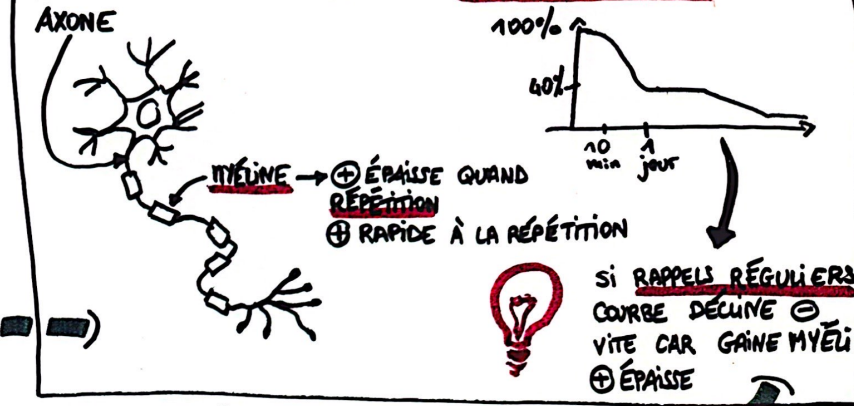 AXONE
MYÉLINE → ⊕ ÉPAISSE QUAND
RÉPÉTITION
⊕ RAPIDE À LA RÉPÉTITION
100%
40%
10 min
1 jour
Si RAPPELS RÉGULIERS
COURBE DÉCLINE ⊖
VITE CAR GAINE MYÉLI
⊕ ÉPAISSE